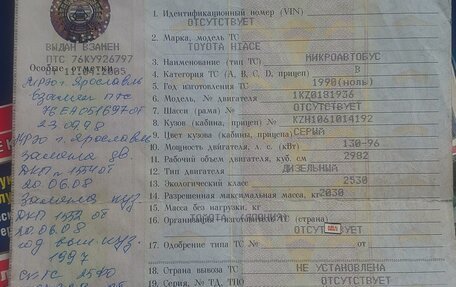 ВЫДАН ВЗАМЕН
ПТС 76КУ926797
Особые отметки
Ярэо г. Ярославль
взамен ПТС
23.09.98
РЭО г. Ярославль
замена дв.
20.06.08
замена куз.
ДКП 1552 от
20.06.08
год вып куз.
1997
1. Идентификационный номер (VIN)
ОТСУТСТВУЕТ
2. Марка, модель ТС
TOYOTA HIACE
3. Наименование (тип ТС) МИКРОАВТОБУС
4. Категория ТС (А, В, С, D, прицеп) В
5. Год изготовления ТС 1990(ноль)
6. Модель, № двигателя 1KZ0181936
7. Шасси (рама) № ОТСУТСТВУЕТ
8. Кузов (кабина, прицеп) № KZH1061014192
9. Цвет кузова (кабины, прицепа) СЕРЫЙ
10. Мощность двигателя, л. с. (кВт) 130-96
11. Рабочий объем двигателя, куб. см 2982
12. Тип двигателя ДИЗЕЛЬНЫЙ
13. Экологический класс 2530
14. Разрешенная максимальная масса, кг 2030
15. Масса без нагрузки, кг
16. Организация - изготовитель ТС (страна)
TOYOTA (ЯПОНИЯ)
ОТСУТСТВУЕТ
17. Одобрение типа ТС № от
18. Страна вывоза ТС НЕ УСТАНОВЛЕНА
19. Серия, № ТД, ТПО ОТСУТСТВУЕТ